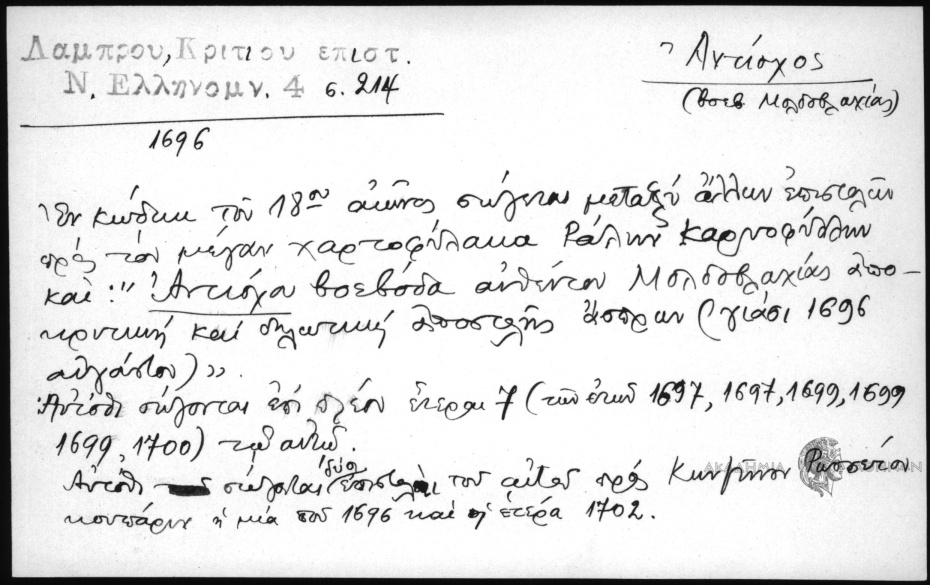 Λάμπρου, Κριτίου επιστ.
Ν. Ελληνομν. 4 σ. 214
Ἀντίοχος
(βοεβ Μολδοβλαχίας)
1696
Ἐν κώδικι τοῦ 18ου αἰῶνος σώζεται μεταξύ ἄλλων ἐπιστολῶν
πρός τόν μέγαν χαρτοφύλακα Ράλλην Καρυοφύλλην
καί: "Ἀντιόχου βοεβόδα αὐθέντου Μολδοβλαχίας ἀπο-
κριτική καί δηλωτική ἀποστολῆς ἄσπρων (γιάσι 1696
αὐγούστου)».
Αὐτόθι σώζονται ἐπί πλέον ἕτεραι 7 (τῶν ἐτῶν 1697, 1697, 1699, 1699
1699, 1700) τοῦ αὐτοῦ.
Αὐτόθι σώζονται δύο ἐπιστολαὶ τοῦ αὐτοῦ πρός Κομνηνόν
κουπάρην ἡ μία τοῦ 1696 καί ἡ ἑτέρα 1702.
ΑΚΑΔΗΜΙΑ ΑΘΗΝΩΝ